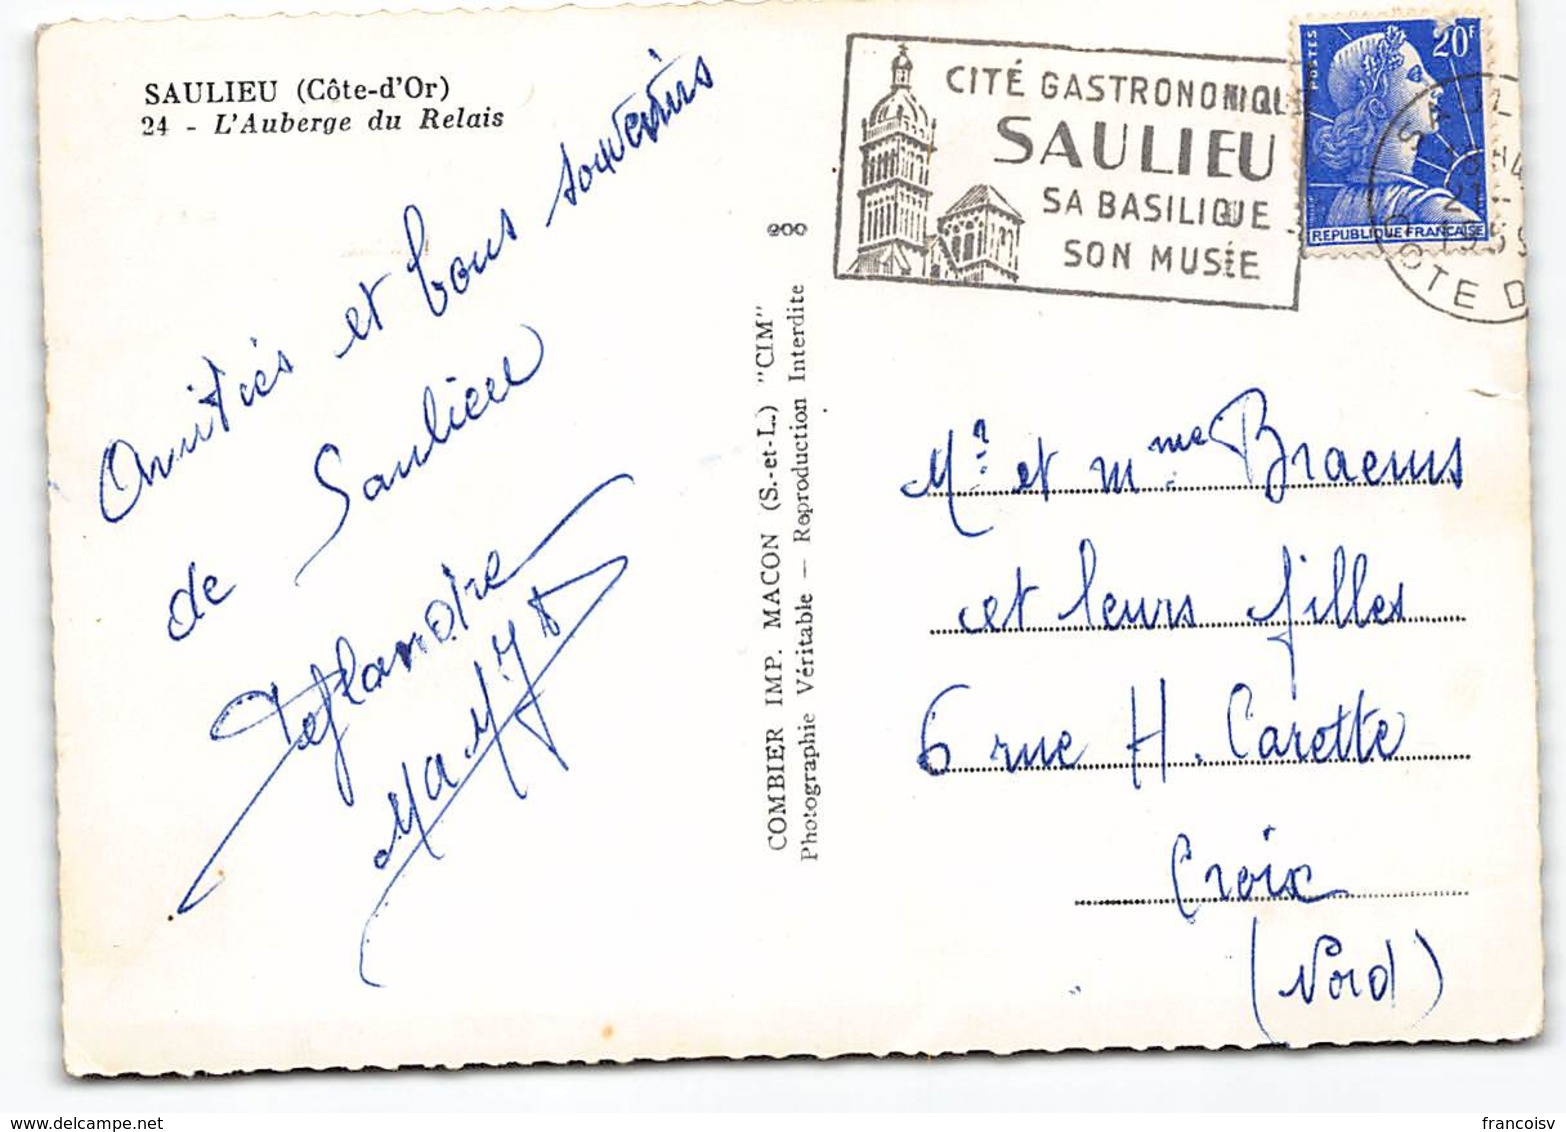 SAULIEU (Côte-d'Or)
24 - L'Auberge du Relais
Amitiés et bons souvenirs
de Saulieu
200
COMBIER IMP. MACON (S.-et-L.) "CIM"
Photographie Véritable — Reproduction Interdite
CITÉ GASTRONOMIQUE
SAULIEU
SA BASILIQUE
SON MUSÉE
POSTES
20F
REPUBLIQUE FRANÇAISE
SAUL
21
1959
COTE D
Mr et Mme Braems
et leurs filles
6 rue H. Carette
Croix
(Nord)
francoisv